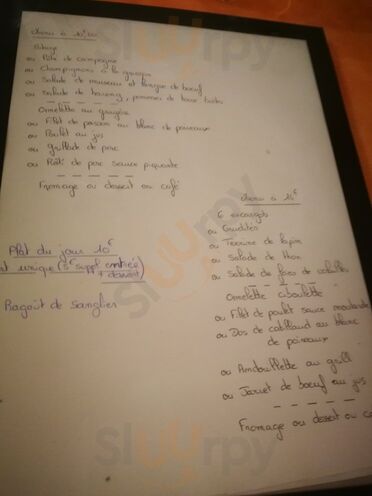 Menu à 10€50
Potage
ou Pâté de campagne
ou Champignons à la grecque
ou Salade de museau et langue de boeuf
ou Salade de hareng, pommes de terre tièdes
Omelette au gruyère
ou Filet de poisson au blanc de poireaux
ou Poulet au jus
ou Grillade de porc
ou Rôti de porc sauce piquante
Fromage ou dessert ou café
Plat du jour 10€
unique (5€ suppl entrée
+ dessert)
Ragoût de sanglier
Menu à 16€
6 escargots
ou Crudités
ou Terrine de lapin
ou Salade de thon
ou Salade de foies de volailles
Omelette ciboulette
ou Filet de poulet sauce moutarde
ou Dos de cabillaud au blanc
de poireaux
ou Andouillette au grill
ou Jarret de boeuf au jus
Fromage ou dessert ou
Sluurpy
Sluurpy
Sluurpy